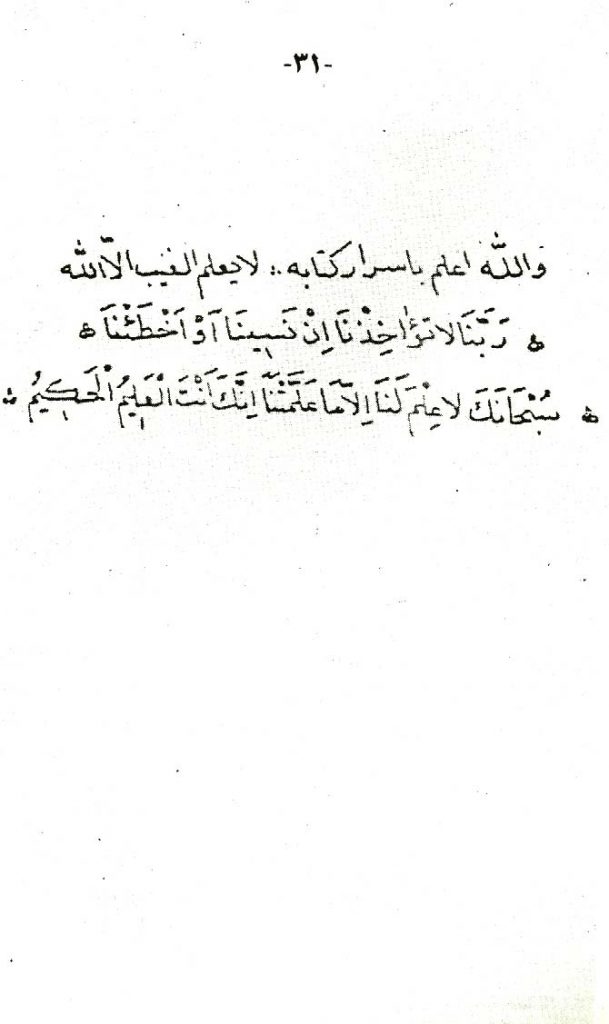 -٣١-
والله اعلم باسرار كتابه ∴ لا يعلم الغيب الا الله
رَبَّنَا لَا تُؤَاخِذْنَا اِنْ نَسِينَا اَوْ اَخْطَئْنَا
سُبْحَانَكَ لَا عِلْمَ لَنَا اِلَّا مَا عَلَّمْتَنَا اِنَّكَ اَنْتَ الْعَلِيمُ الْحَكِيمُ